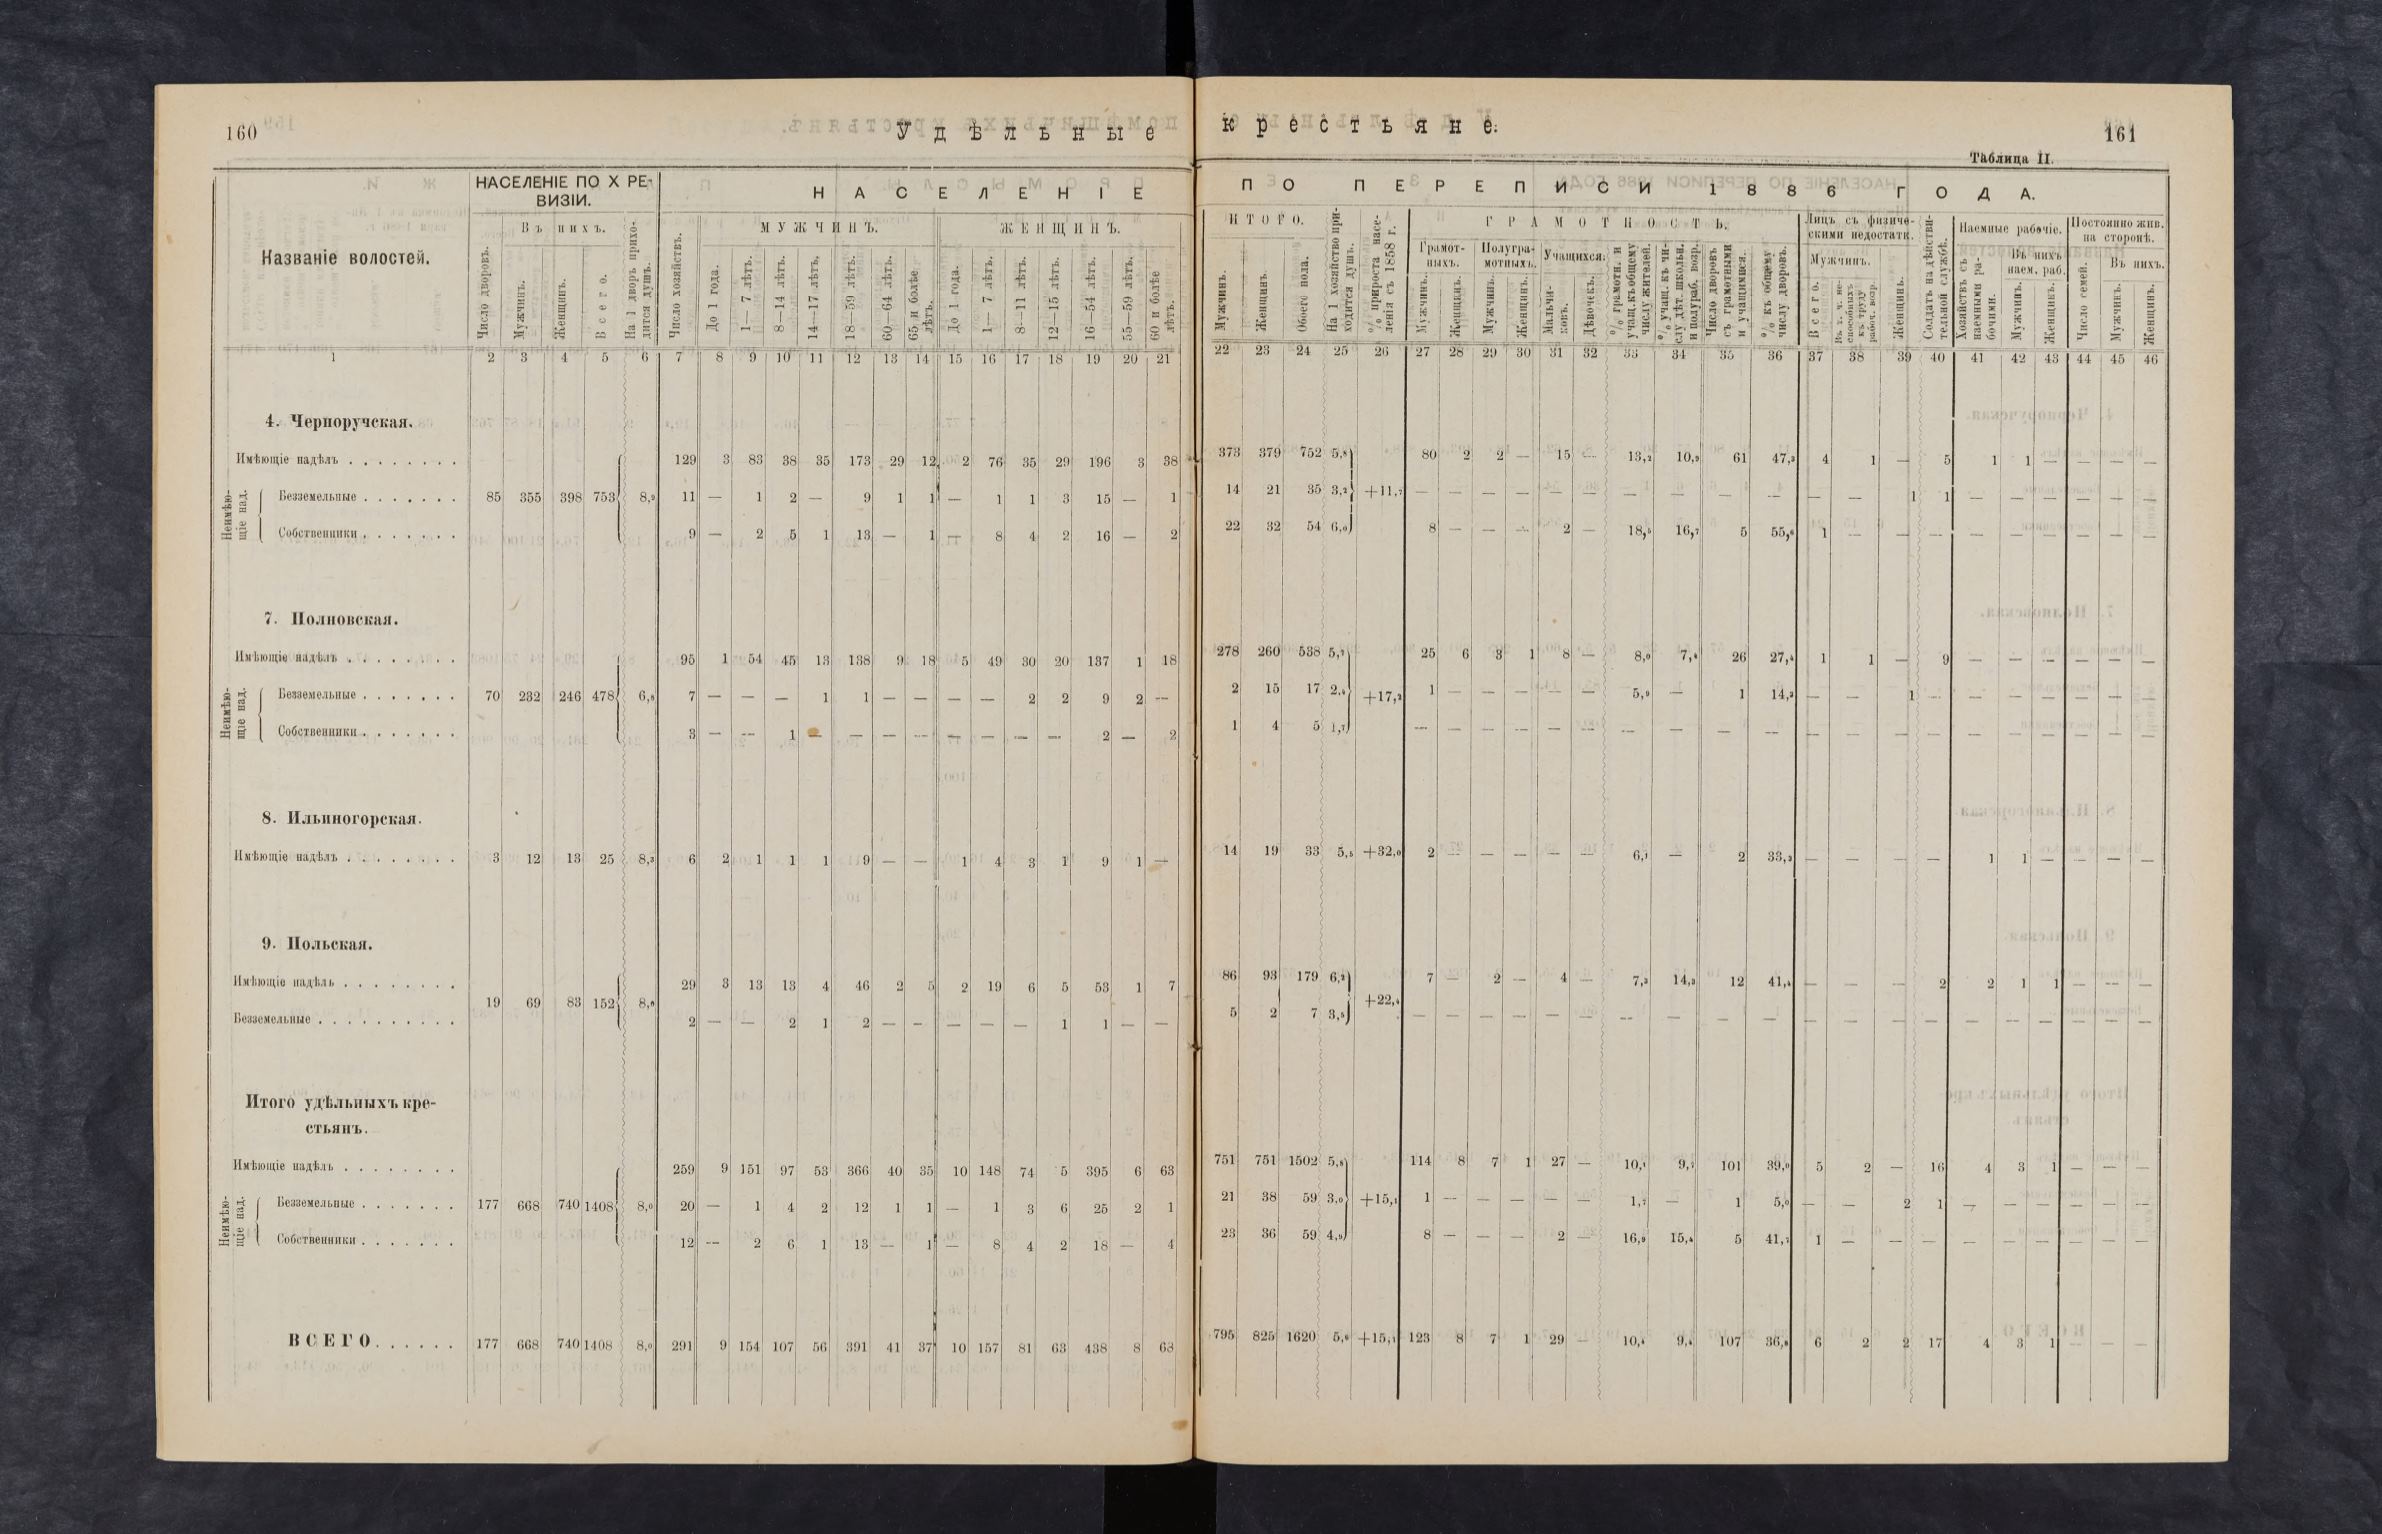 160
Удѣльные крестьяне.
161
Таблица II.
НАСЕЛЕНІЕ ПО X РЕ-
ВИЗІИ.
НАСЕЛЕНІЕ ПО ПЕРЕПИСИ 1886 ГОДА.
Названіе волостей.
Число дворовъ.
Въ нихъ.
Мужчинъ.
Женщинъ.
Всего.
На 1 дворъ прихо-
дится душъ.
Число хозяйствъ.
МУЖЧИНЪ.
До 1 года.
1—7 лѣтъ.
8—14 лѣтъ.
14—17 лѣтъ.
18—59 лѣтъ.
60—64 лѣтъ.
65 и болѣе
лѣтъ.
ЖЕНЩИНЪ.
До 1 года.
1—7 лѣтъ.
8—11 лѣтъ.
12—15 лѣтъ.
16—54 лѣтъ.
55—59 лѣтъ.
60 и болѣе
лѣтъ.
ИТОГО.
Мужчинъ.
Женщинъ.
Обоего пола.
На 1 хозяйство при-
ходится душъ.
% прироста насе-
ленія съ 1858 г.
ГРАМОТНОСТЬ.
Грамот-
ныхъ.
Мужчинъ.
Женщинъ.
Полугра-
мотныхъ.
Мужчинъ.
Женщинъ.
Учащихся.
Мальчи-
ковъ.
Дѣвочекъ.
% грамотн. и
учащ. къ общему
числу жителей.
% учащ. къ чи-
слу дѣт. школьн.
и полураб. возр.
Число дворовъ
съ грамотными
и учащимися.
% къ общему
числу дворовъ.
Лицъ съ физиче-
скими недостатк.
Мужчинъ.
Всего.
Въ т. ч. не-
способныхъ
къ труду
рабоч. возр.
Женщинъ.
Солдатъ на дѣйстви-
тельной службѣ.
Наемные рабочіе.
Хозяйствъ съ
наемными ра-
бочими.
Въ нихъ
наем. раб.
Мужчинъ.
Женщинъ.
Постоянно жив.
на сторонѣ.
Число семей.
Въ нихъ.
Мужчинъ.
Женщинъ.
1 2 3 4 5 6 7 8 9 10 11 12 13 14 15 16 17 18 19 20 21 22 23 24 25 26 27 28 29 30 31 32 33 34 35 36 37 38 39 40 41 42 43 44 45 46
4. Черноручская.
Имѣющіе надѣлъ . . . . . . . . 129 3 83 38 35 173 29 12 2 76 35 29 196 3 38 373 379 752 5,8 80 2 2 — 15 — 13,2 10,9 61 47,3 4 1 — 5 1 1 — — — —
Неимѣю-
щіе над.
Безземельные . . . . . . . 85 355 398 753 8,9 11 — 1 2 — 9 1 1 — 1 1 3 15 — 1 14 21 35 3,2 +11,7 — — — — — — — — — — — — 1 1 — — — — — —
Собственники . . . . . . . 9 — 2 5 1 13 — 1 — 8 4 2 16 — 2 22 32 54 6,0 8 — — — 2 — 18,5 16,7 5 55,6 1 — — — — — — — — —
7. Полновская.
Имѣющіе надѣлъ . . . . . . . . 95 1 54 45 13 138 9 18 5 49 30 20 137 1 18 278 260 538 5,7 25 6 3 1 8 — 8,0 7,4 26 27,4 1 1 — 9 — — — — — —
Неимѣю-
щіе над.
Безземельные . . . . . . . 70 232 246 478 6,8 7 — — — 1 1 — — — — 2 2 9 2 — 2 15 17 2,4 +17,2 1 — — — — — 5,9 — 1 14,3 — — 1 — — — — — — —
Собственники . . . . . . . 3 — — 1 — — — — — — — — 2 — 2 1 4 5 1,7 — — — — — — — — — — — — — — — — — — — —
8. Ильиногорская.
Имѣющіе надѣлъ . . . . . . . . 3 12 13 25 8,3 6 2 1 1 1 9 — — 1 4 3 1 9 1 — 14 19 33 5,5 +32,0 2 — — — — — 6,1 — 2 33,3 — — — — 1 1 — — — —
9. Польская.
Имѣющіе надѣлъ . . . . . . . . 29 3 13 13 4 46 2 5 2 19 6 5 53 1 7 86 93 179 6,2 7 — 2 — 4 — 7,3 14,3 12 41,4 — — — 2 2 1 1 — — —
19 69 83 152 8,0 +22,4
Безземельные . . . . . . . . . . 2 — — 2 1 2 — — — — — 1 1 — — 5 2 7 3,5 — — — — — — — — — — — — — — — — — — — —
Итого удѣльныхъ кре-
стьянъ.
Имѣющіе надѣлъ . . . . . . . . 259 9 151 97 53 366 40 35 10 148 74 5 395 6 63 751 751 1502 5,8 114 8 7 1 27 — 10,1 9,7 101 39,0 5 2 — 16 4 3 1 — — —
Неимѣю-
щіе над.
Безземельные . . . . . . . 177 668 740 1408 8,0 20 — 1 4 2 12 1 1 — 1 3 6 25 2 1 21 38 59 3,0 +15,1 1 — — — — — 1,7 — 1 5,0 — — 2 1 — — — — — —
Собственники . . . . . . . 12 — 2 6 1 13 — 1 — 8 4 2 18 — 4 23 36 59 4,9 8 — — — 2 — 16,9 15,4 5 41,7 1 — — — — — — — — —
ВСЕГО . . . . . . 177 668 740 1408 8,0 291 9 154 107 56 391 41 37 10 157 81 63 438 8 68 795 825 1620 5,6 +15,1 123 8 7 1 29 — 10,4 9,4 107 36,8 6 2 2 17 4 3 1 — — —